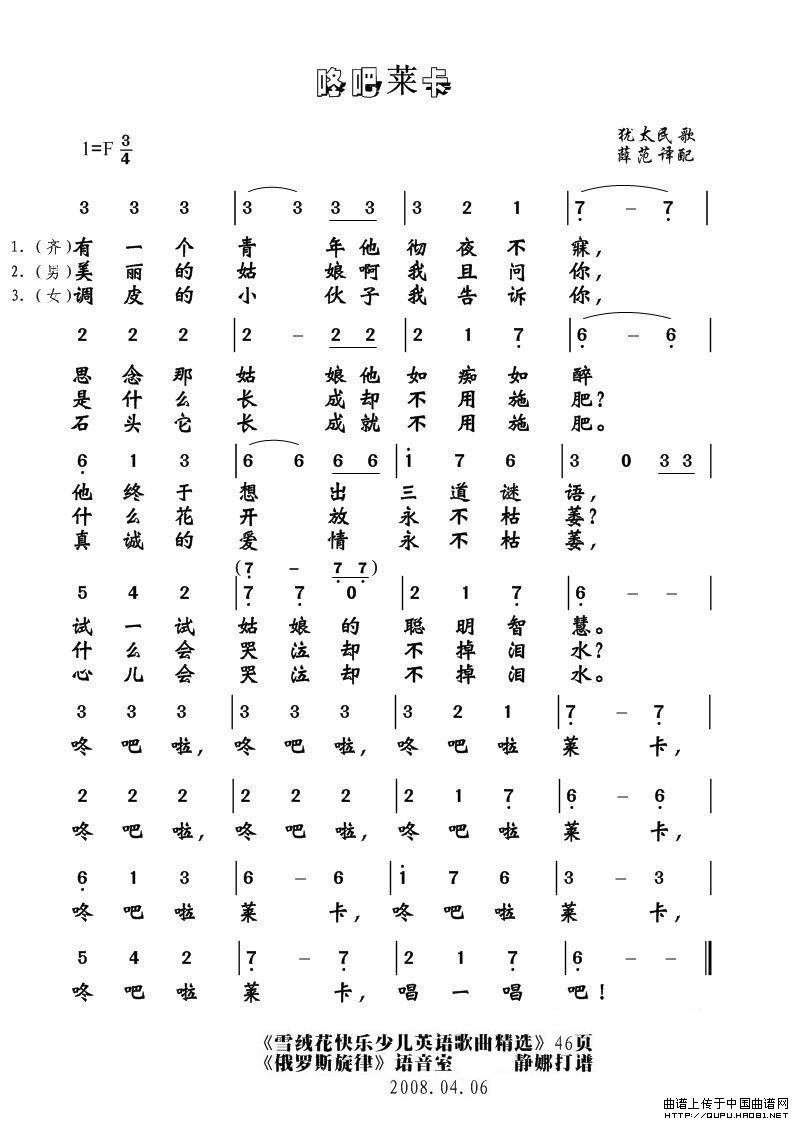 咚吧莱卡
犹太民歌
1=F 3/4
薛范译配
3 3 3 | 3 3 3 3 | 3 2 1 | 7 – 7 |
1.(齐)有一个青年他彻夜不寐,
2.(男)美丽的姑娘啊我且问你,
3.(女)调皮的小伙子我告诉你,
2 2 2 | 2 – 2 2 | 2 1 7 | 6 – 6 |
思念那姑娘他如痴如醉
是什么长成却不用施肥?
石头它长成就不用施肥。
6 1 3 | 6 6 6 6 | 1 7 6 | 3 0 3 3 |
他终于想出三道谜语,
什么花开放永不枯萎?
真诚的爱情永不枯萎,
(7 – 7 7)
5 4 2 | 7 7 0 | 2 1 7 | 6 – – |
试一试姑娘的聪明智慧。
什么会哭泣却不掉泪水?
心儿会哭泣却不掉泪水。
3 3 3 | 3 3 3 | 3 2 1 | 7 – 7 |
咚吧啦,咚吧啦,咚吧啦莱卡,
2 2 2 | 2 2 2 | 2 1 7 | 6 – 6 |
咚吧啦,咚吧啦,咚吧啦莱卡,
6 1 3 | 6 – 6 | 1 7 6 | 3 – 3 |
咚吧啦莱卡,咚吧啦莱卡,
5 4 2 | 7 – 7 | 2 1 7 | 6 – – ‖
咚吧啦莱卡,唱一唱吧!
《雪绒花快乐少儿英语歌曲精选》46页
《俄罗斯旋律》语音室 静娜打谱
2008.04.06
曲谱上传于中国曲谱网
HTTP://QUPU.HAO81.NET